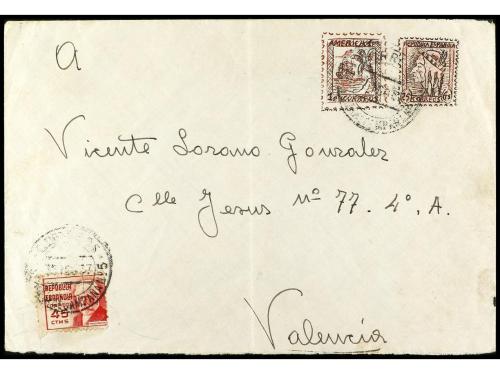 A
AMERICA
REPUBLICA ESPAÑOLA
CORREOS
Vicente Lozano Gonzalez
Clle Jesus Nº 77. 4º. A.
Valencia
REPÚBLICA
ESPAÑOLA
45
CTMS